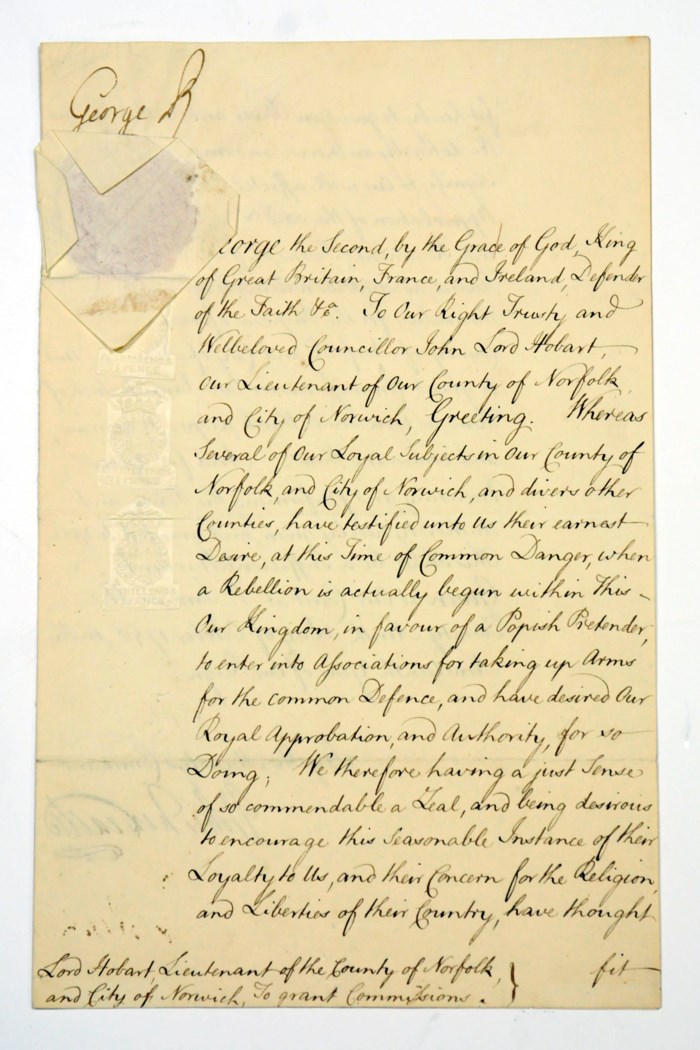 George R
George the Second, by the Grace of God, King
of Great Britain, France, and Ireland, Defender
of the Faith &ca. To Our Right Trusty and
Welbeloved Councillor John Lord Hobart,
Our Lieutenant of Our County of Norfolk
and City of Norwich, Greeting. Whereas
Several of Our Loyal Subjects in Our County of
Norfolk, and City of Norwich, and divers other
Counties, have testified unto Us their earnest
Desire, at this Time of Common Danger, when
a Rebellion is actually begun within This
Our Kingdom, in favour of a Popish Pretender,
to enter into Associations for taking up Arms
for the common Defence, and have desired Our
Royal Approbation, and Authority, for so
Doing; We therefore having a just Sense
of so commendable a Zeal, and being desirous
to encourage this seasonable Instance of their
Loyalty to Us, and their Concern for the Religion
and Liberties of their Country, have thought
fit
Lord Hobart, Lieutenant of the County of Norfolk,
and City of Norwich, To grant Commissions.